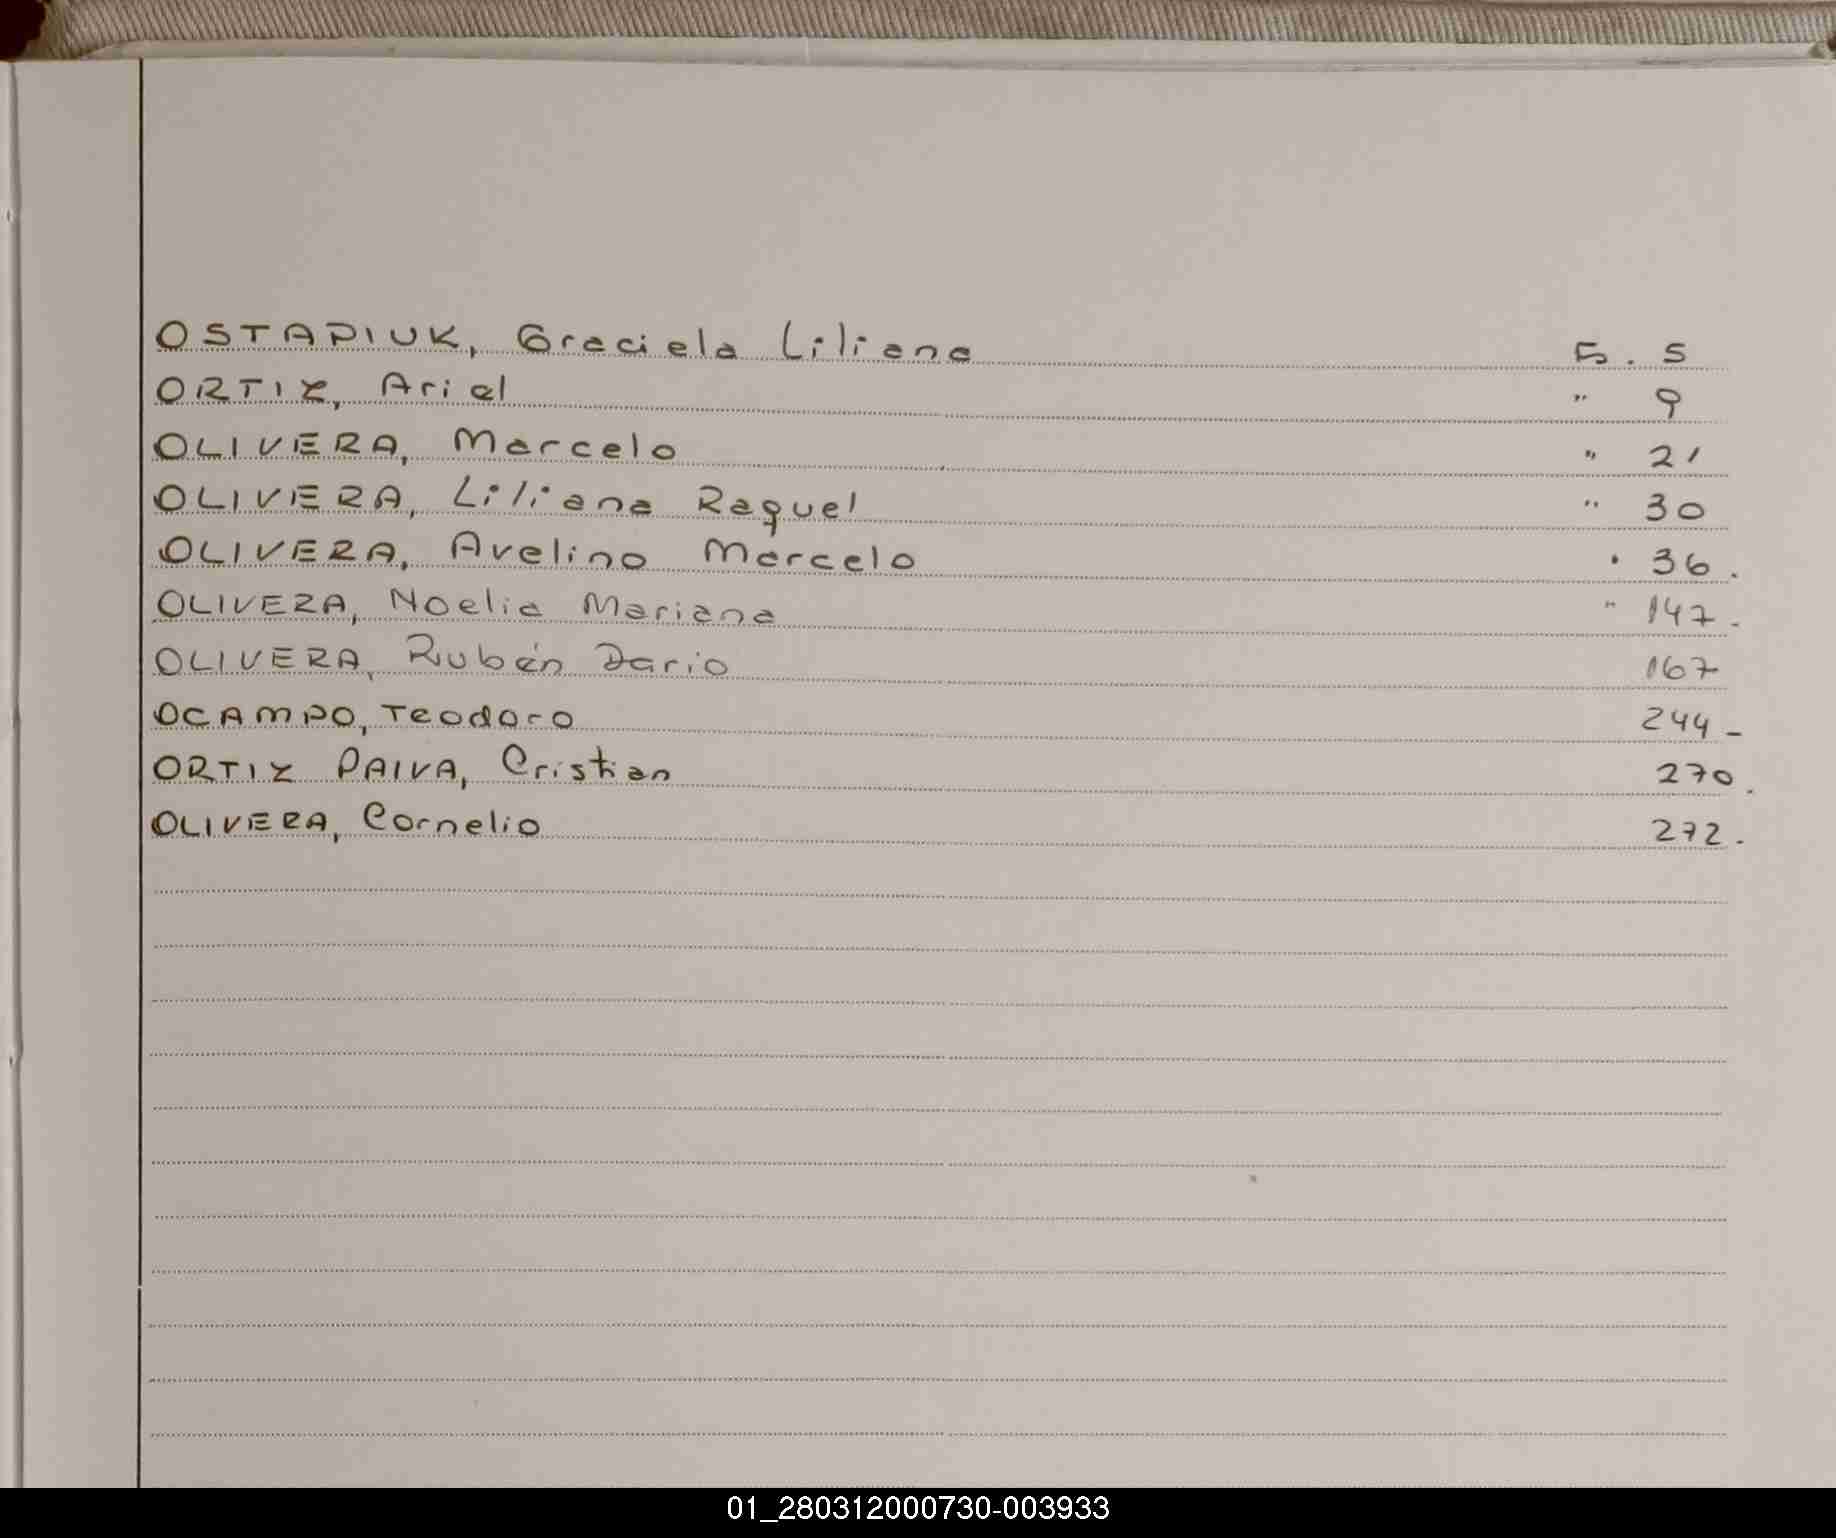 OSTAPIUK, Graciela Liliana Fo. 5
ORTIZ, Ariel " 9
OLIVERA, Marcelo " 21
OLIVERA, Liliana Raquel " 30
OLIVERA, Avelino Marcelo " 36.
OLIVERA, Noelia Mariana " 147.
OLIVERA, Rubén Dario 167
OCAMPO, Teodoro 244-
ORTIZ PAIVA, Cristian 270.
OLIVERA, Cornelio 272.
01_280312000730-003933